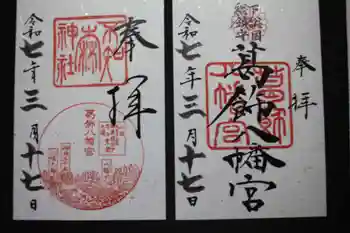 奉拝
不知森神社
葛飾八幡宮
令和七年三月十七日
奉拝
下総国総鎮守
葛飾八幡宮
葛飾八幡宮
令和七年三月十七日